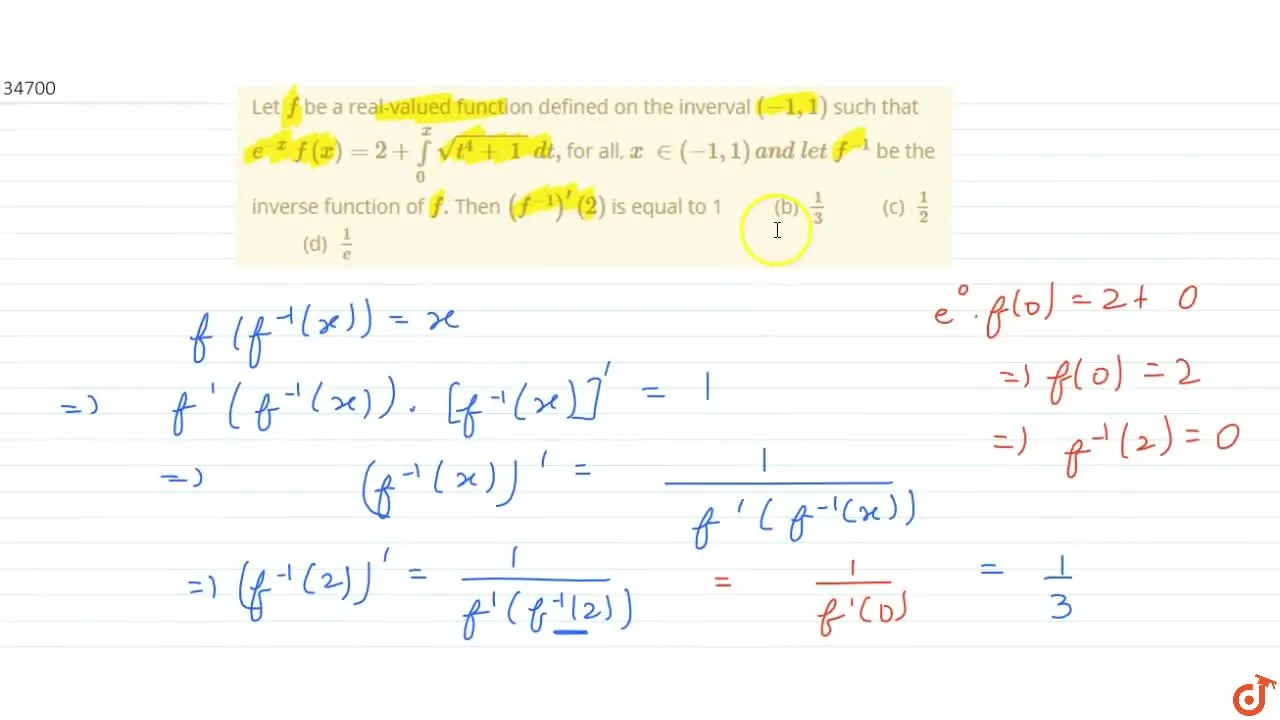 34700
Let f be a real-valued function defined on the inverval (−1, 1) such that
e⁻ˣ f(x) = 2 + ∫₀ˣ √(t⁴ + 1) dt, for all, x ∈ (−1, 1) and let f⁻¹ be the
inverse function of f. Then (f⁻¹)′(2) is equal to 1 (b) 1/3 (c) 1/2
(d) 1/e
f(f⁻¹(x)) = x
=> f′(f⁻¹(x)) . [f⁻¹(x)]′ = 1
=> (f⁻¹(x))′ = 1/(f′(f⁻¹(x)))
=> (f⁻¹(2))′ = 1/(f′(f⁻¹(2))) = 1/(f′(0)) = 1/3
e⁰ . f(0) = 2 + 0
=> f(0) = 2
=> f⁻¹(2) = 0